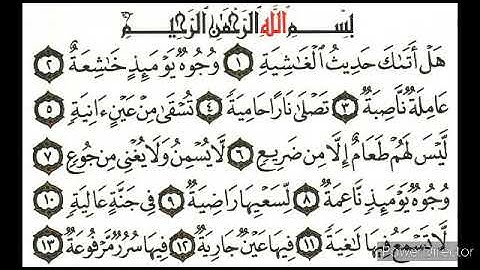 بِسْمِ اللَّهِ الرَّحْمَٰنِ الرَّحِيمِ
هَلْ أَتَىٰكَ حَدِيثُ الْغَٰشِيَةِ ١ وُجُوهٌ يَوْمَئِذٍ خَٰشِعَةٌ ٢
عَامِلَةٌ نَّاصِبَةٌ ٣ تَصْلَىٰ نَارًا حَامِيَةً ٤ تُسْقَىٰ مِنْ عَيْنٍ ءَانِيَةٍ ٥
لَّيْسَ لَهُمْ طَعَامٌ إِلَّا مِن ضَرِيعٍ ٦ لَّا يُسْمِنُ وَلَا يُغْنِي مِن جُوعٍ ٧
وُجُوهٌ يَوْمَئِذٍ نَّاعِمَةٌ ٨ لِّسَعْيِهَا رَاضِيَةٌ ٩ فِي جَنَّةٍ عَالِيَةٍ ١٠
لَّا تَسْمَعُ فِيهَا لَٰغِيَةً ١١ فِيهَا عَيْنٌ جَارِيَةٌ ١٢ فِيهَا سُرُرٌ مَّرْفُوعَةٌ ١٣
PowerDirector